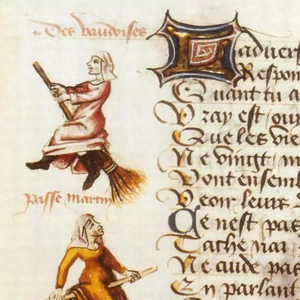 Des vaudoises
passe martin
Ladvers
Respon
Quant tu a
Vray est our
Que les vie
Ne vingt m
Vont ensem
Veoir leurs
Ce nest pas
Ne aude pas
En parlant